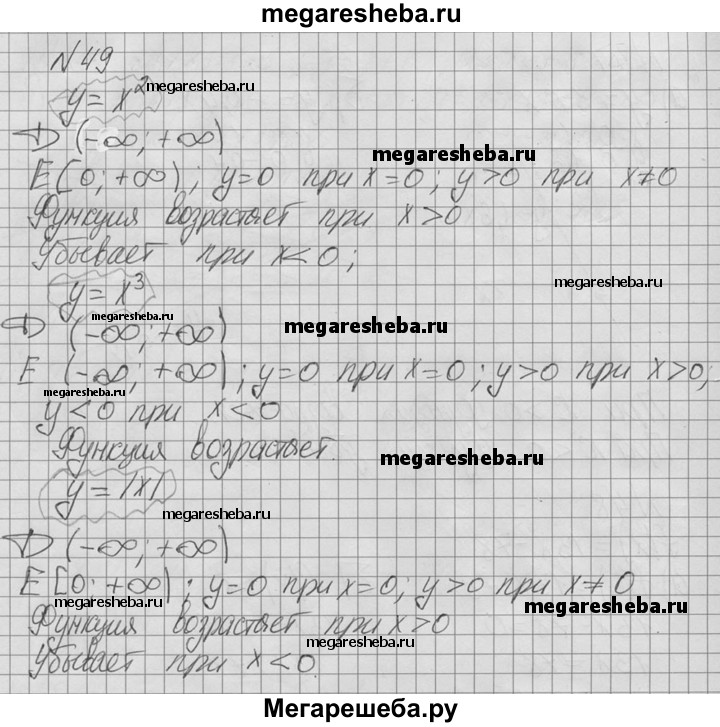 megaresheba.ru
№49
y = x²
megaresheba.ru
D (-∞; +∞)
megaresheba.ru
E [0; +∞); y=0 при x=0; y>0 при x≠0
Функция возрастает при x>0
Убывает при x<0;
megaresheba.ru
y = x³
megaresheba.ru
D (-∞; +∞)
megaresheba.ru
E (-∞; +∞); y=0 при x=0; y>0 при x>0;
megaresheba.ru
y<0 при x<0
Функция возрастает.
megaresheba.ru
y = |x|
megaresheba.ru
D (-∞; +∞)
E [0; +∞); y=0 при x=0; y>0 при x≠0
megaresheba.ru
megaresheba.ru
Функция возрастает при x>0
megaresheba.ru
Убывает при x<0
Мегарешеба.ру